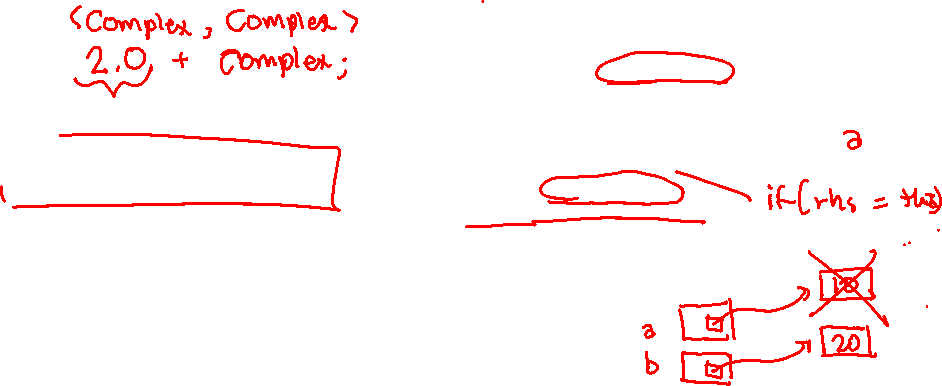 <Complex, Complex>
2.0 + Complex;
a
if(rhs = this)
a
b
20